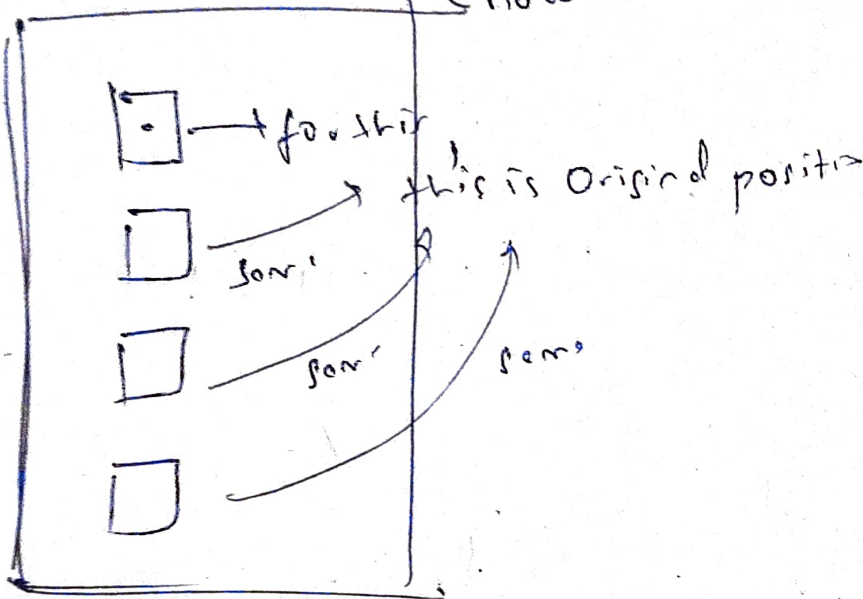 for this
this is Original position
same
same
same